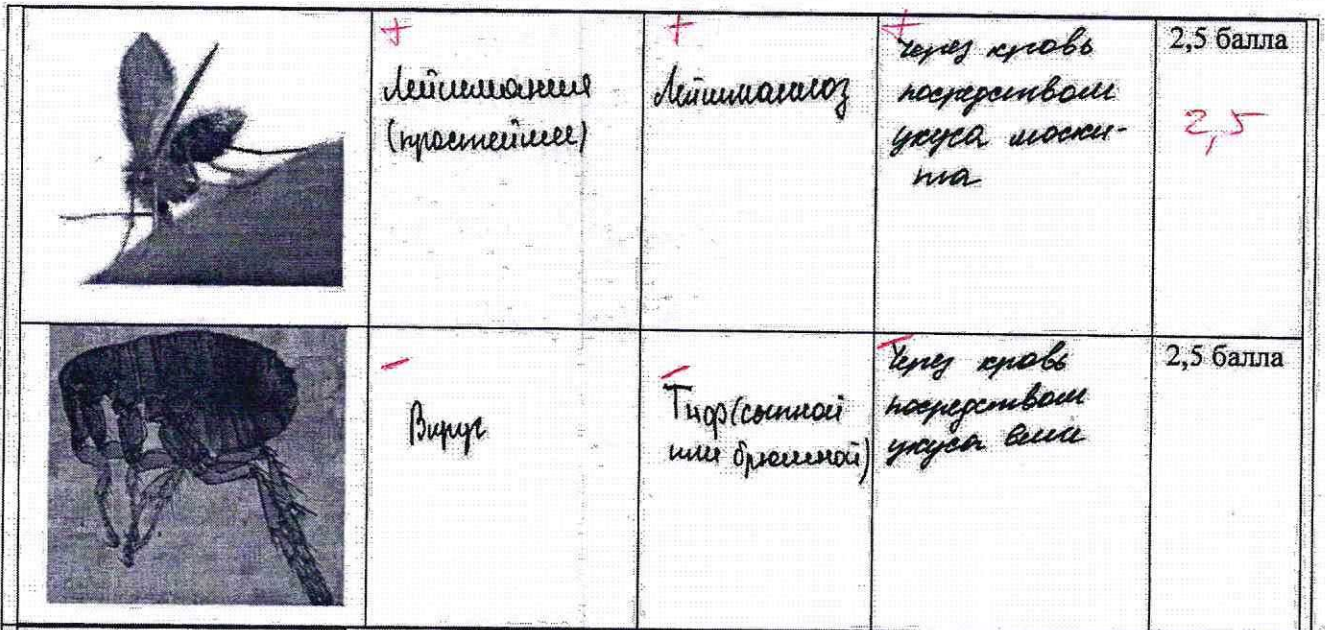 +
+
+
Лейшмания
(простейшее)
Лейшманиоз
Через кровь
посредством
укуса моски-
та
2,5 балла
2,5
-
-
-
Вирус
Тиф (сыпной
или брюшной)
Через кровь
посредством
укуса вши
2,5 балла